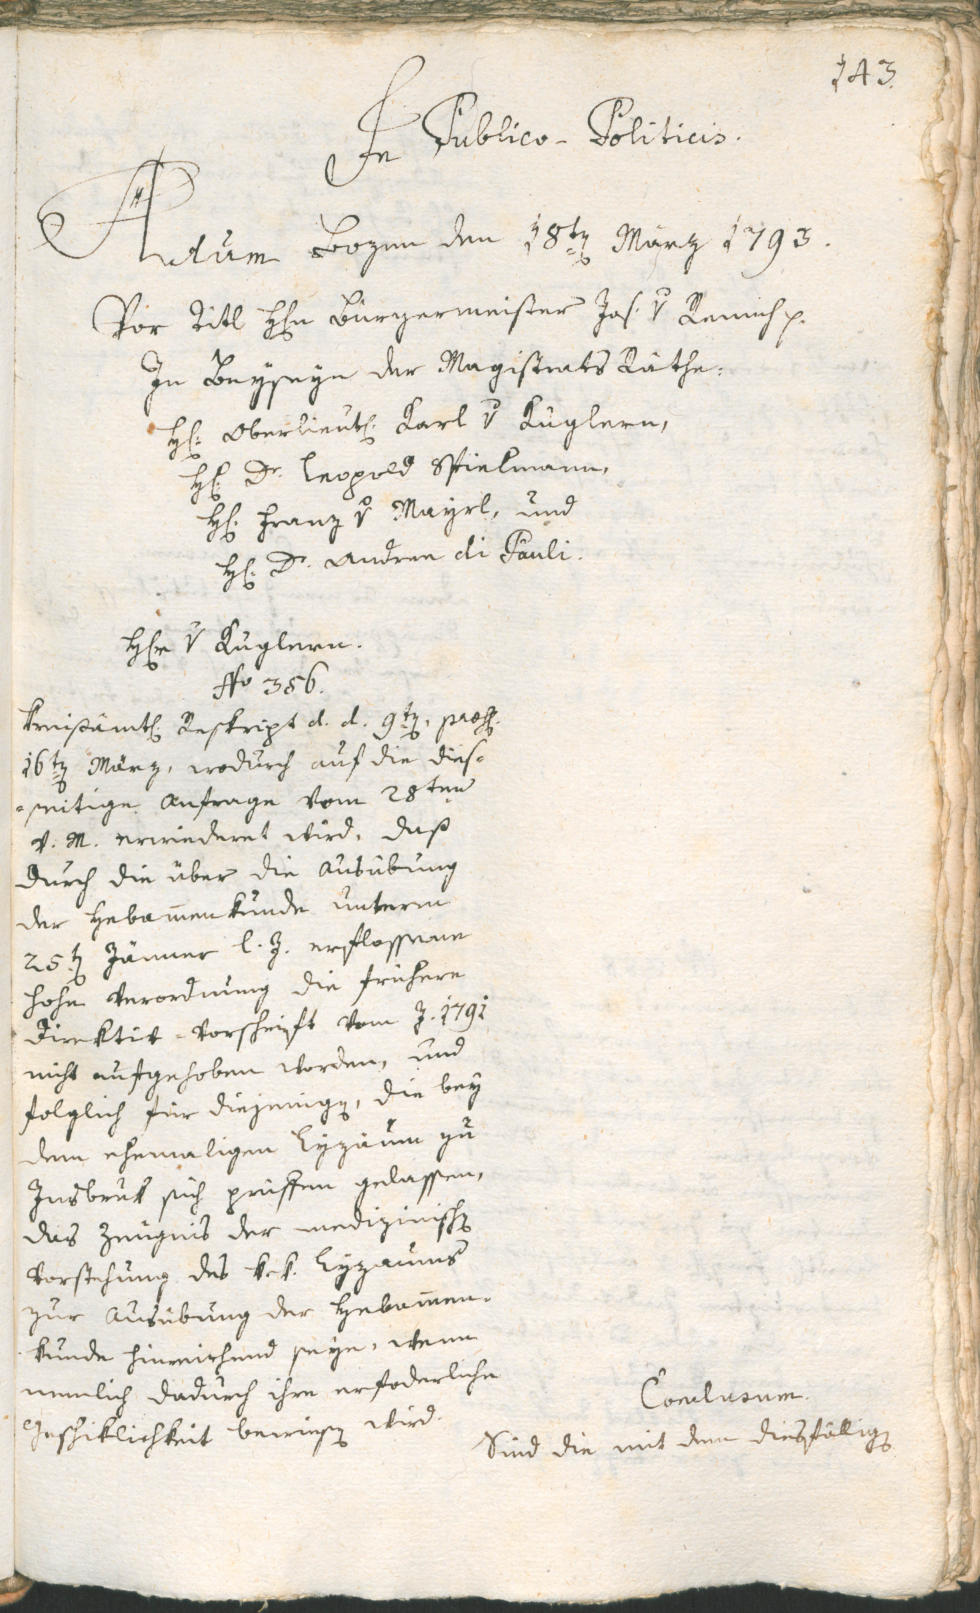 143.
In Publico-Politicis.
Actum Bozen den 18t: März 1793.
Vor Titl H: Bürgermeister Jos. v Remich p.
In Beyseyn der Magistrats Räthe:
H: Oberlieut: Karl v Kuglern,
H: Dr. Leopold Spielmann,
H: Franz v Mayrl, und
H: Dr. Andree di Pauli.
Herr v Kuglern.
No 356.
Kreisämtl: Reskript d. d. 9t: präs:
16t: März, wodurch auf die dies=
=seitige Anfrage vom 28ten
v. M. erwiederet wird, daß
durch die über die Ausübung
der Hebam̅enkunde unterm
25t: Jänner l. J. erflossene
hohe Verordnung die frühere
Direktiv-Vorschrift vom J. 1791
nicht aufgehoben worden, und
folglich für diejenige, die bey
dem ehemaligen Lyzäum zu
Insbruk sich prüffen gelassen,
das Zeugnis der medizinisch:
Vorstehung des k.k. Lyzäums
zur Ausübung der Hebam̅en=
kunde hinreichend seye, wenn
nemlich dadurch ihre erfoderliche
Geschiklichkeit bewiesen wird.
Conclusum.
Sind die mit dem diesfällig: